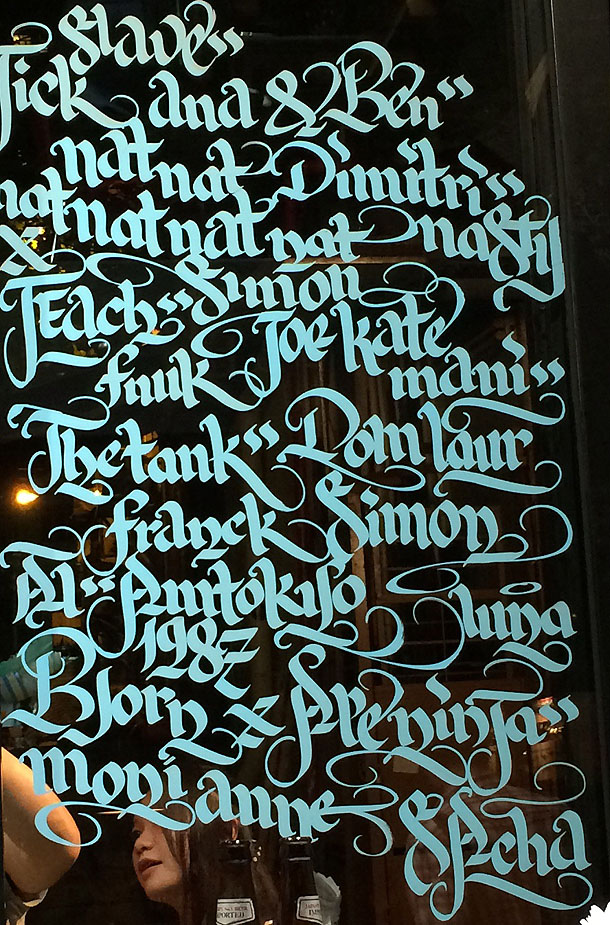 Slave"
Tick ana & Ben"
nat nat Dimitri"
nat nat nat nat nasty
x
TEach" Simon
fnuk Joe kate
mani"
The tank" Dom laur
franck Simon
Al" luna
1987
Bjorn x
moni anne SAcha
IMPORTED